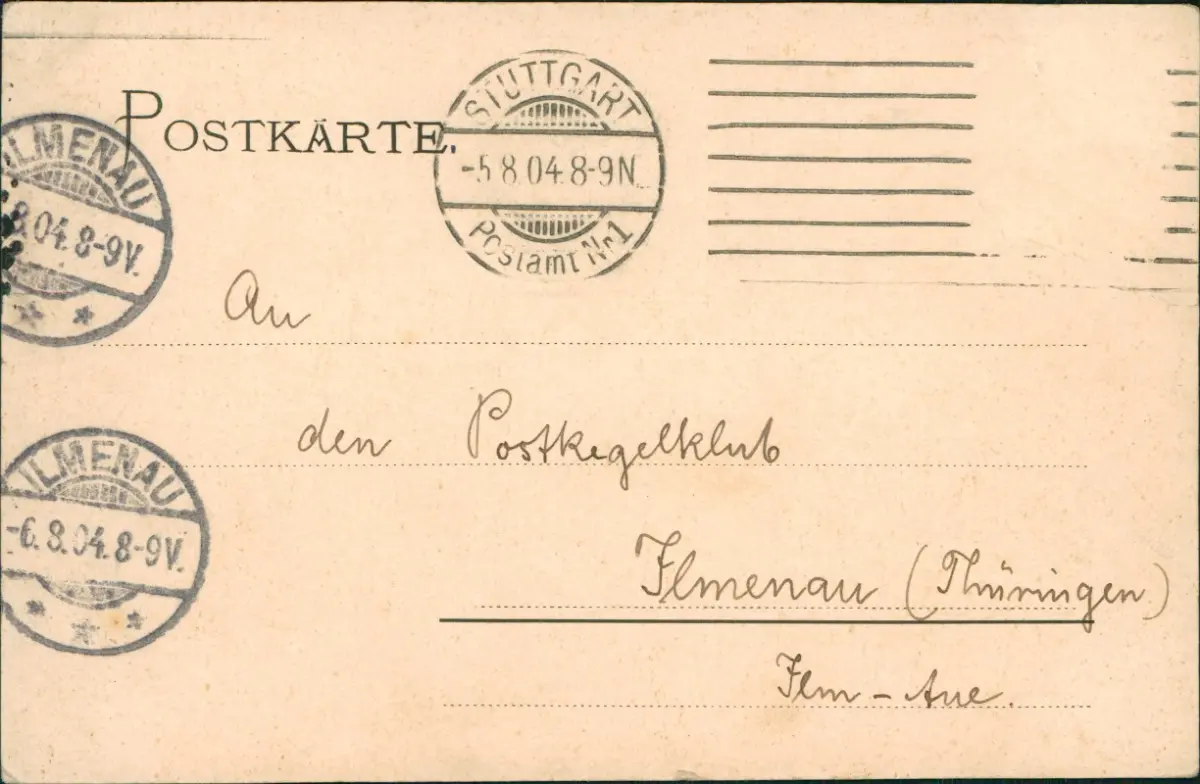 POSTKARTE.
STUTTGART
-5 8.04.8-9N
Postamt Nr1
ILMENAU
8.04.8-9V.
An
den Postkegelklub
ILMENAU
-6.8.04.8-9V.
Ilmenau (Thüringen)
Ilm - Aue.